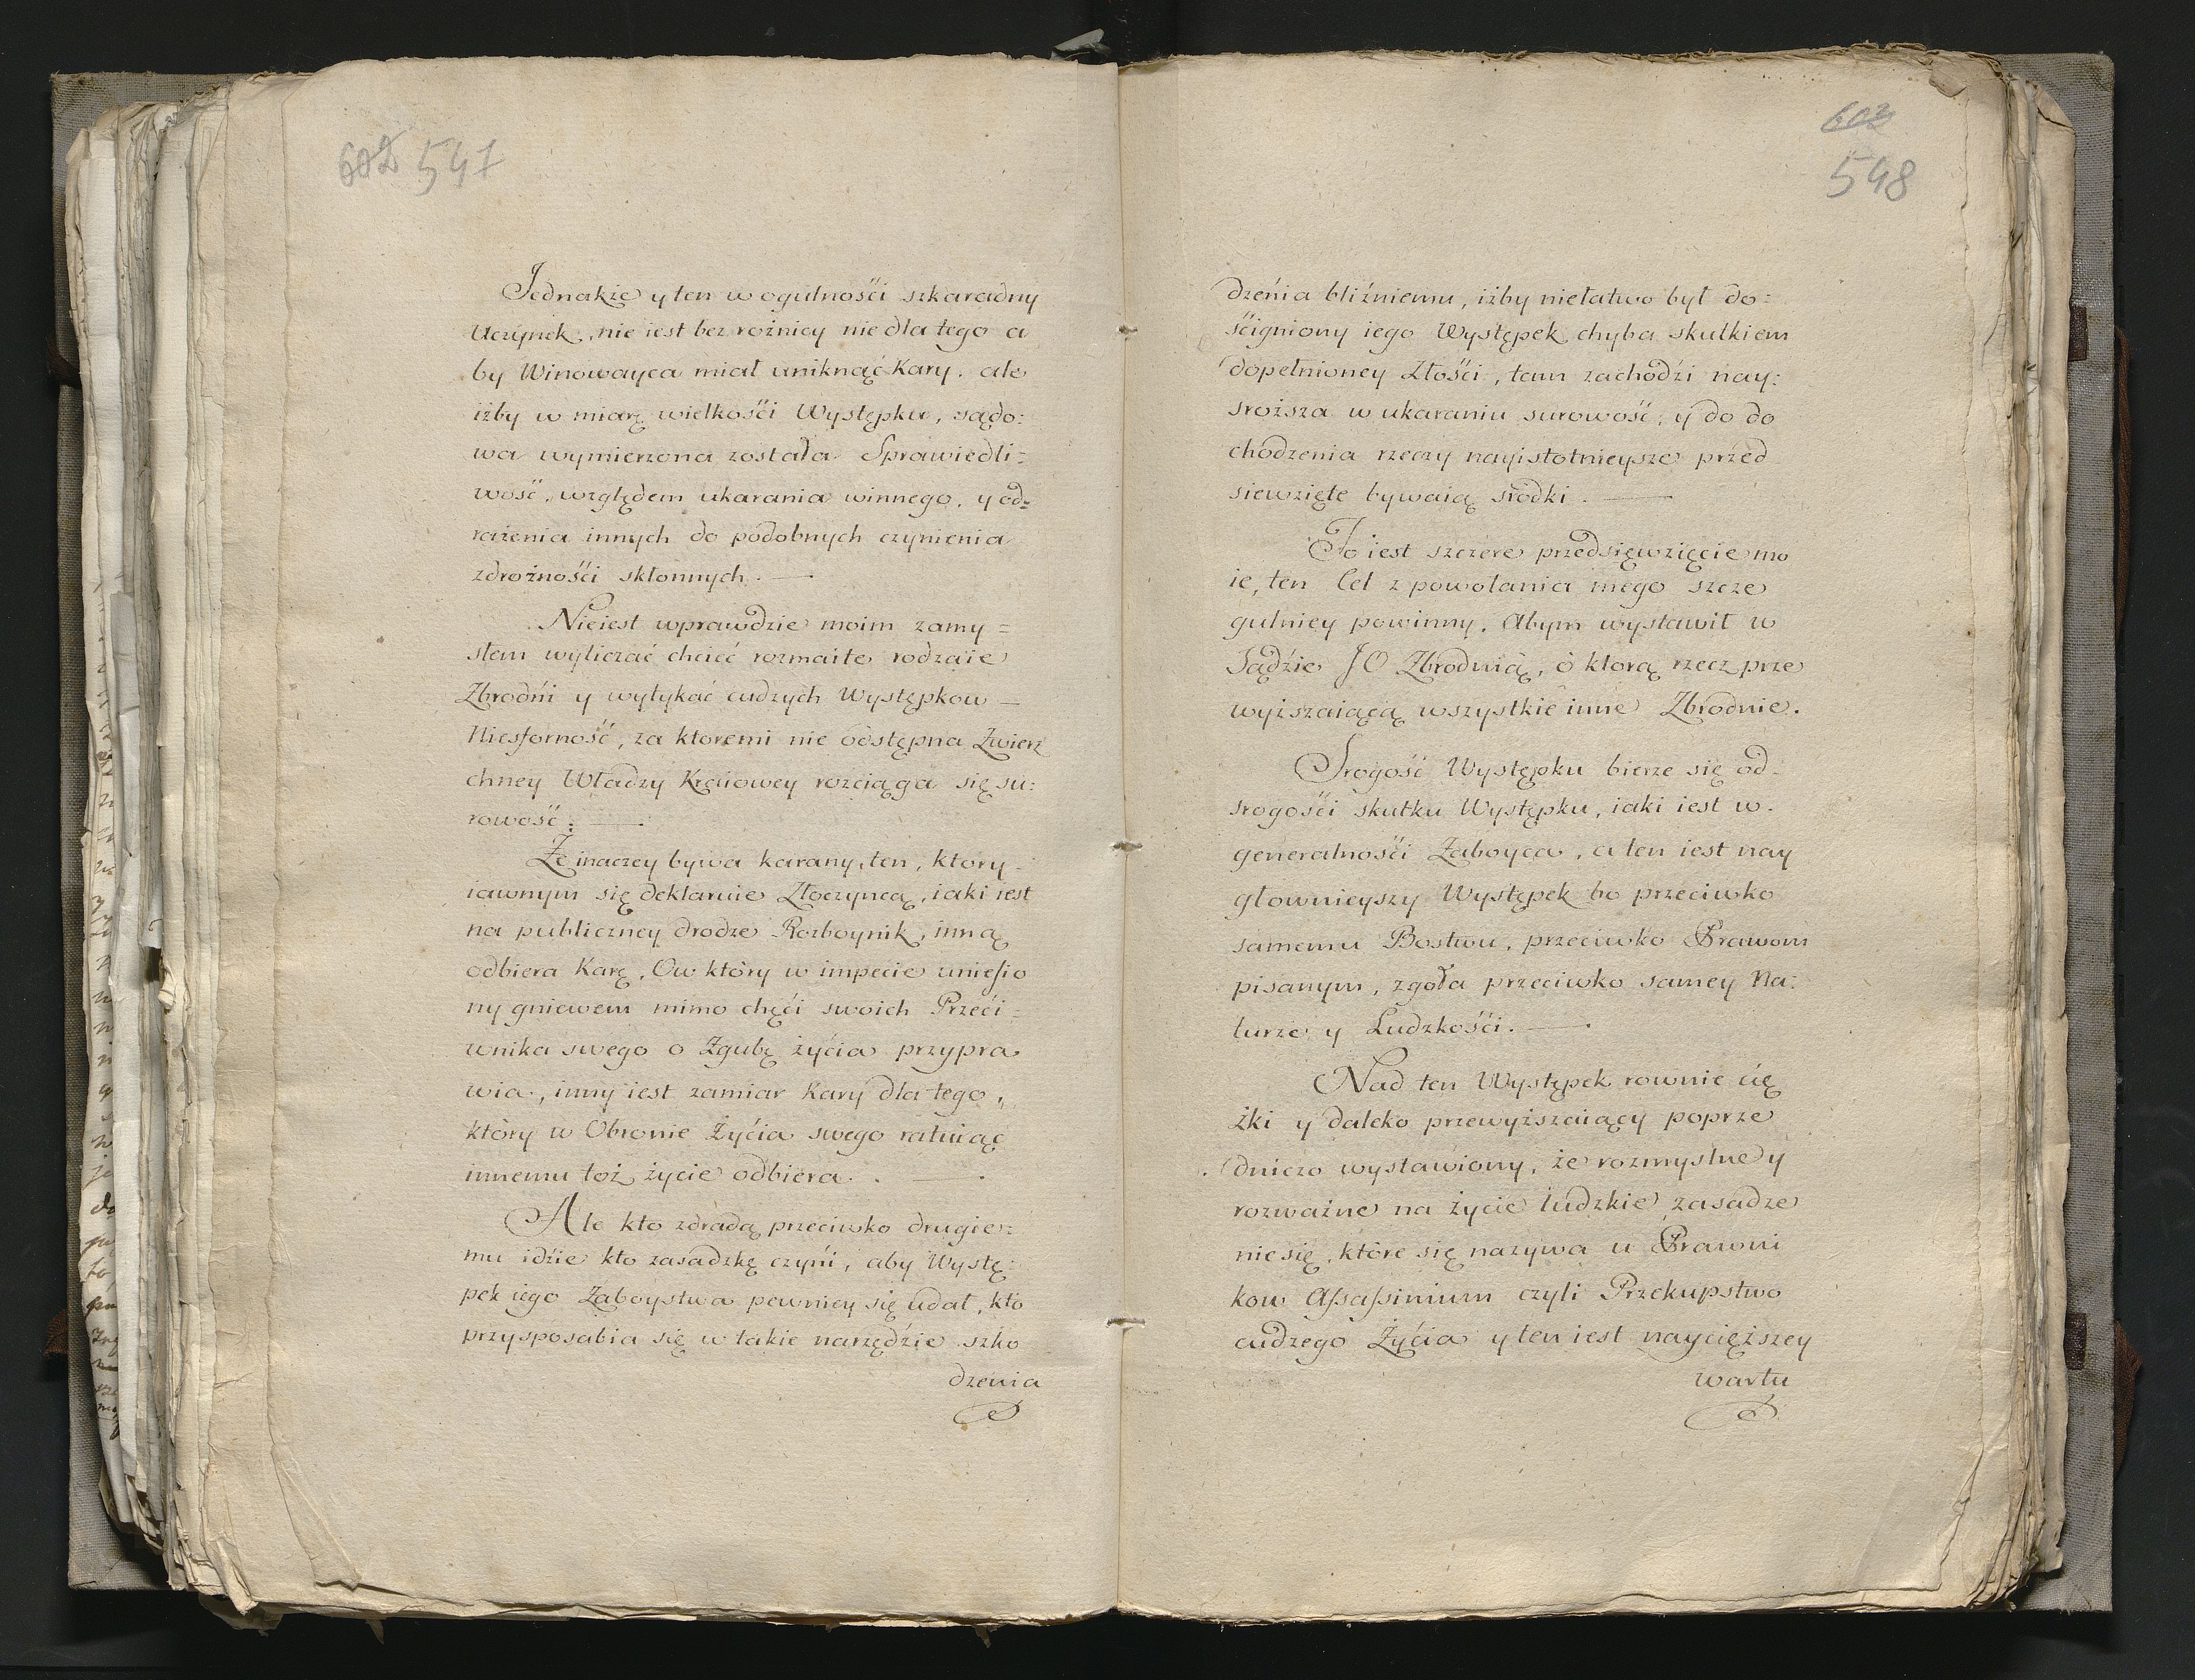 602 547
Jednakże y ten w ogulnośći szkaradny
Uczynek, nie iest bez rożnicy nie dla tego a
by Winowayca miał uniknąć Kary. ale
iżby w miarę wielkośći Występku, sądo:
wa wymierzona została Sprawiedli:
wość, względem ukarania winnego, y od=
rażenia innych do podobnych czynienia
zdrożnośći skłonnych. —
Nieiest wprawdzie moim zamy=
słem wyliczać chcieć rozmaite rodzaie
Zbrodńi y wytykać cudzych Występkow —
Niesforność, za ktoremi nie odstępna Zwierz
chney Władzy Kraiowey rozciąga się su:
rowość. —
Że inaczey bywa karany ten, ktory
iawnym się deklaruie Złoczyncą, iaki iest
na publiczney drodze Rozboynik, inną
odbiera Karę, Ow ktòry w impecie uniesio
ny gniewem mimo chęći swoich Przeći=
wnika swego o Zgubę życia przypra
wia, inny iest zamiar Kary dla tego,
ktòry w Obronie Żyćia swego ratuiąc
innemu toż życie odbiera. . —
Ale kto zdradą przeciwko drugie:
mu idźie kto zasadzkę czyni, aby Wystę:
pek iego Zaboystwa pewniey się udał, kto
przysposabia się w takie narzędzie szko
dzenia
602
548
dzeńia bliźniemu, iżby niełatwo był do:
śćigniony iego Występek chyba skutkiem
dopełnioney Złośći, tam zachodźi nay:
sroższa w ukaraniu surowość, y do do
chodzenia rzeczy nayistotnieysze przed
siewzięte bywaią srodki. —
To iest szczere przedsięwzięcie mo
ie, ten Cel z powołania mego szcze
gulniey powinny. Abym wystawił w
Sądźie JO Zbrodnią, ò ktorą rzecz prze
wyższaiącą wszystkie inne Zbrodnie.
Srogość Występku bierze się od=
srogośći skutku Występku, iaki iest w
generalnośći Zaboyca, a ten iest nay
głownieyszy Występek bo przeciwko
samemu Bostwu, przeciwko Prawom
pisanym, zgoła przeciwko samey Na:
turze y Ludzkośći. —
Nad ten Występek rownie cię
żki y daleko przewyższaiący poprze
dniczo wystawiony, że rozmyslne y
rozważne na życie ludzkie zasadze
nie się, ktòre się nazywa u Prawni
kow Assassinium czyli Przekupstwo
cudzego Żyćia y ten iest naycięższey
wartu